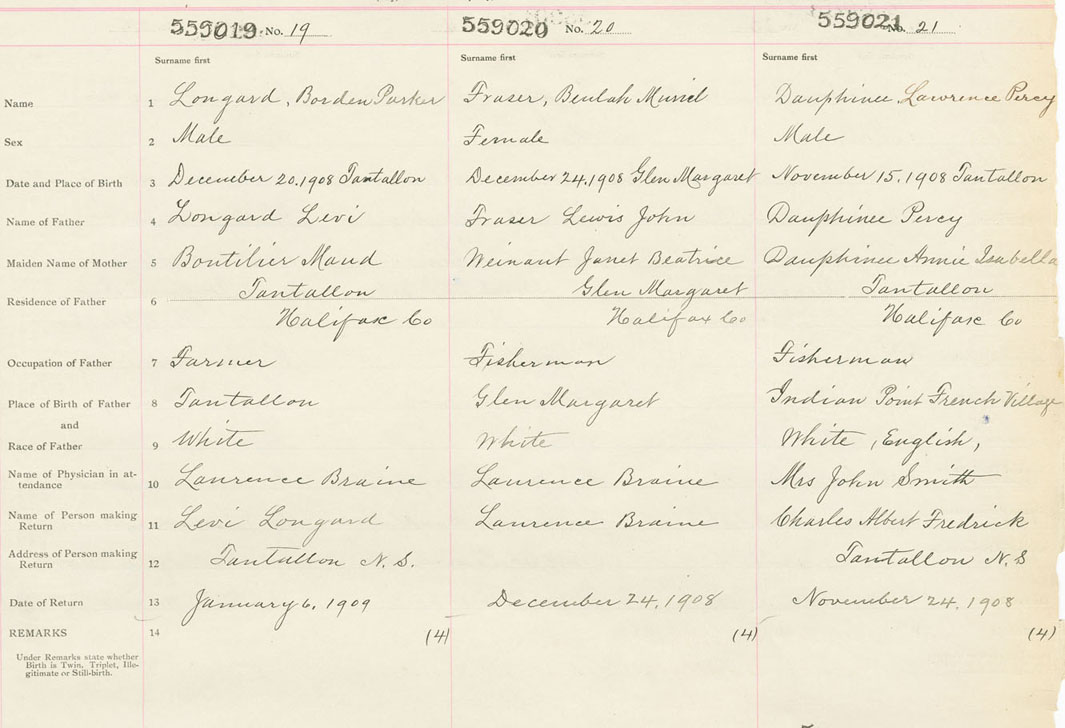 559019 No. 19 559020 No. 20 559021 No. 21
Surname first Surname first Surname first
Name 1 Longard, Borden Parker Fraser, Beulah Muriel Dauphinee Lawrence Percy
Sex 2 Male Female Male
Date and Place of Birth 3 December 20.1908 Tantallon December 24.1908 Glen Margaret November 15.1908 Tantallon
Name of Father 4 Longard Levi Fraser Lewis John Dauphinee Percy
Maiden Name of Mother 5 Boutilier Maud Weinaut Janet Beatrice Dauphinee Annie Isabella
Residence of Father 6 Tantallon Glen Margaret Tantallon
Halifax Co Halifax Co Halifax Co
Occupation of Father 7 Farmer Fisherman Fisherman
Place of Birth of Father 8 Tantallon Glen Margaret Indian Point French Village
and
Race of Father 9 White White White, English,
Name of Physician in at-
tendance 10 Laurence Braine Laurence Braine Mrs John Smith
Name of Person making
Return 11 Levi Longard Laurence Braine Charles Albert Fredrick
Address of Person making
Return 12 Tantallon N.S. Tantallon N.S
Date of Return 13 January 6, 1909 December 24, 1908 November 24, 1908
REMARKS 14 (4) (4) (4)
Under Remarks state whether
Birth is Twin, Triplet, Ille-
gitimate or Still-birth.